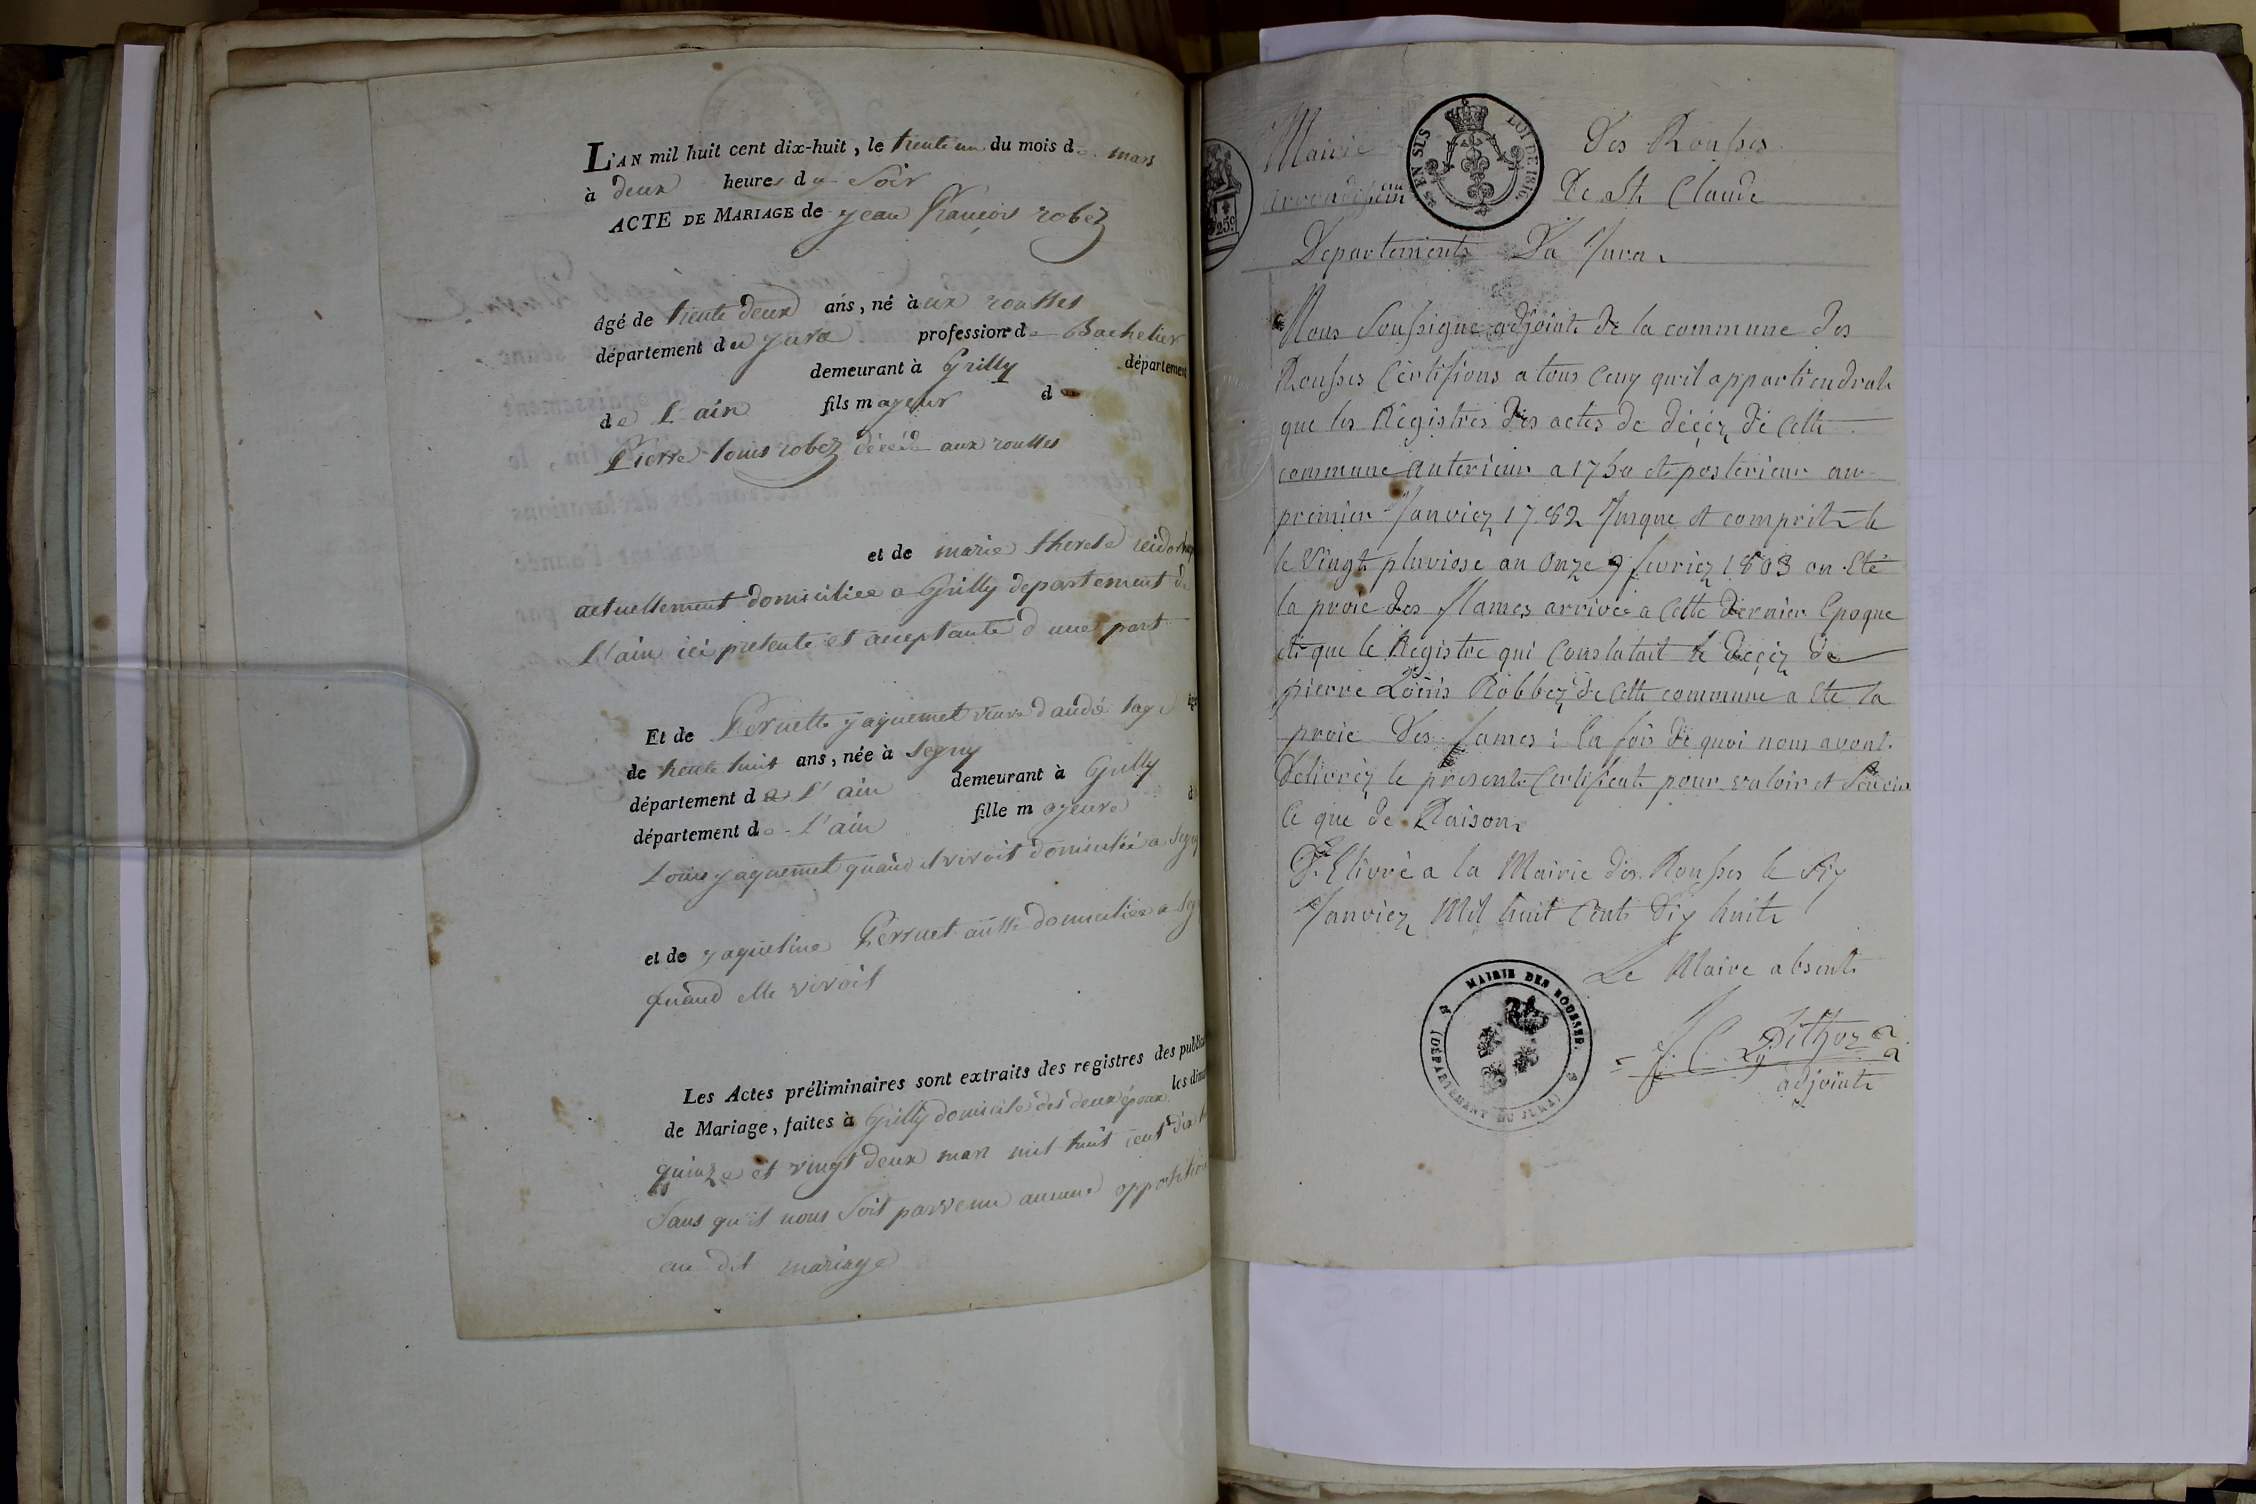 L'AN mil huit cent dix-huit, le trente un du mois de mars
à deux heures du Soir
ACTE DE MARIAGE de jean françois robez
âgé de trente deux ans, né à ux rousses
département du jura profession de Bachelier
demeurant à Grilly département
de L'ain fils mayeur d
Pierre Louis robez décédé aux rousses
et de marie therese
actuellement domiciliee a Grilly departement de
L'ain ici presente et acceptante d une part
Et de Pernette jaquemet veuve d'andé
de trente huit ans, née à Segny
département de L'ain demeurant à Grilly
département de L'ain fille mayeure d
Louis jaquemet quand il vivoit domicilié a
et de jaqueline Perruet domiciliée a
quand elle vivoit
Les Actes préliminaires sont extraits des registres des
de Mariage, faites à Grilly domicile des deux époux les
quinze et vingt deux mars mil huit cent dix
Sans qu'il nous Soit parvenu aucune
au dit mariage
EN SUS LOI DE 1816
Mairie Des Rousses
arrondissem de St Claude
Departement Du Jura
Nous Soussigné adjoint de la commune des
Rousses Certifions a tous ceux qu'il appartiendrat
que les Régistres des actes de décéz de Cette
commune anterieur a 1750 et posterieur au
premier Janviez 1782 Jusque et comprit le
le vingt pluviose an Onze 9 fevriez 1803 on Eté
la proie des flames arrivée a Cette dernier Epoque
et que le Registre qui Constatait le décéz de
pierre Louis Robbez de Cette commune a Eté la
proie des flames : En foi de quoi nous avont
Délivréz le présent Certificat pour valoir et Servir
Ce que de Raison
Délivré a la Mairie des Rousses le Six
Janviez Mil huit Cent Dix huit
Le Maire absent
adjoint
MAIRIE DES ROUSSES
(DÉPARTEMENT DU JURA)